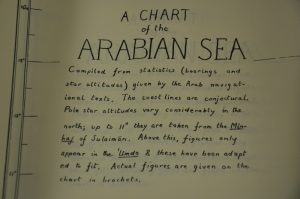 A CHART
of the
ARABIAN SEA
Compiled from statistics (bearings and
star altitudes) given by the Arab navigat-
ional texts. The west lines are conjectural.
Pole star altitudes vary considerably in the
north; up to 11° they are taken from the Min-
haj of Sulaimān. Above this, figures only
appear in the 'Umda & these have been adapt
ed to fit. Actual figures are given on the
chart in brackets.